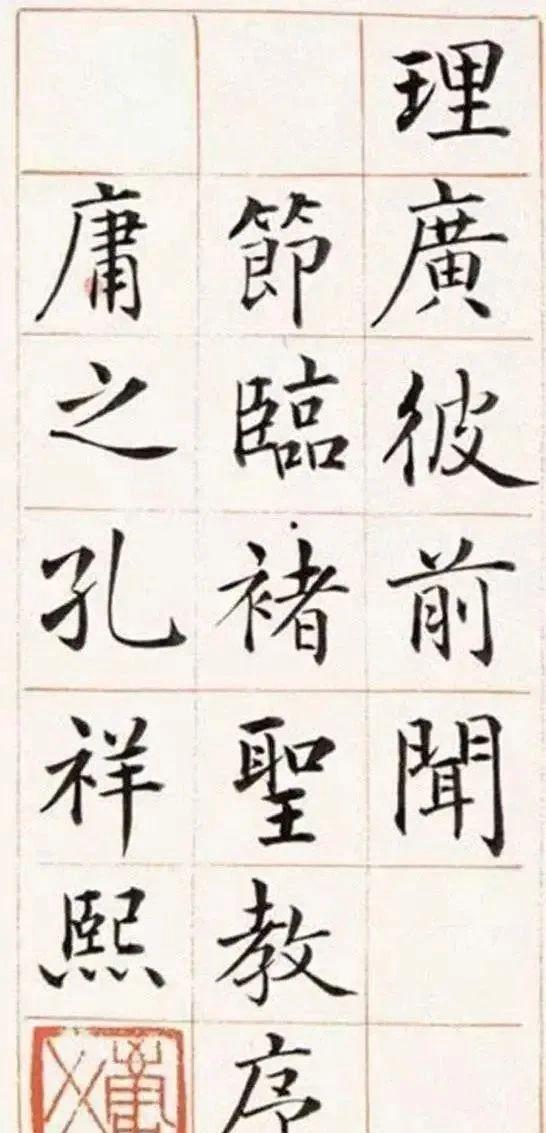 理廣彼前聞
節臨褚聖教序
庸之孔祥熙